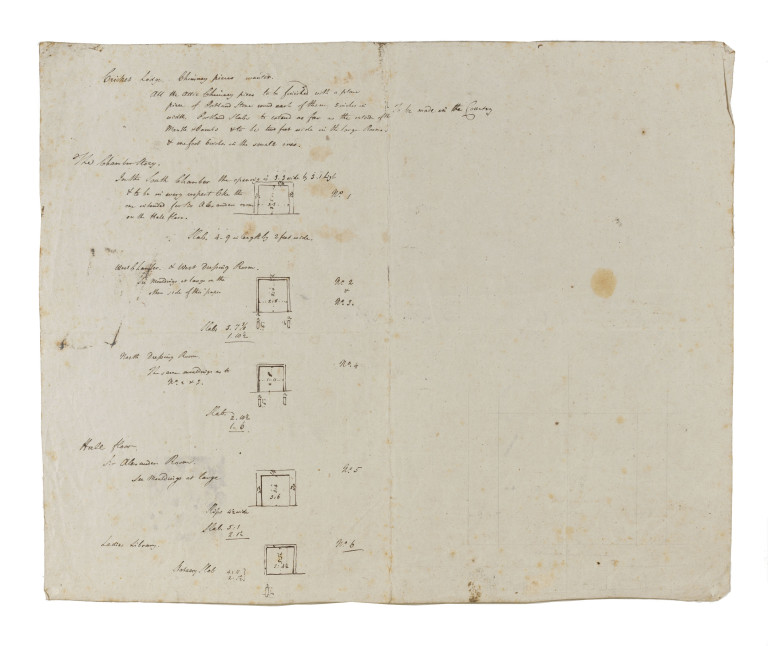 Cricket Lodge Chimney pieces wanted.
All the Attic Chimney pieces to be finished with a plain
piece of Portland Stone round each of them 6 inches in
width Portland Slabs to extend as far as the outside of the
To be made in the Country
& to be two feet wide in the large Rooms
& one foot 6 inches in the small ones.
The Chamber Story.
In the South Chamber the opening is 3.3 wide by 3.1 high
& to be in every respect like the
one intended for Sir Alexanders room
on the Hall floor.
No 1
Slab 4-9 in length by 2 feet wide.
West Chamber & West Dressing Room.
See mouldings at large on the
other side of this paper
No 2
&
No 3.
Slab
North Dressing Room
The same mouldings as to
No 2 & 3.
No 4
Slab
1.6
Hall floor
Sir Alexanders Room
See Mouldings at large
No 5
Slab 5:1
Library
No 6
Slab